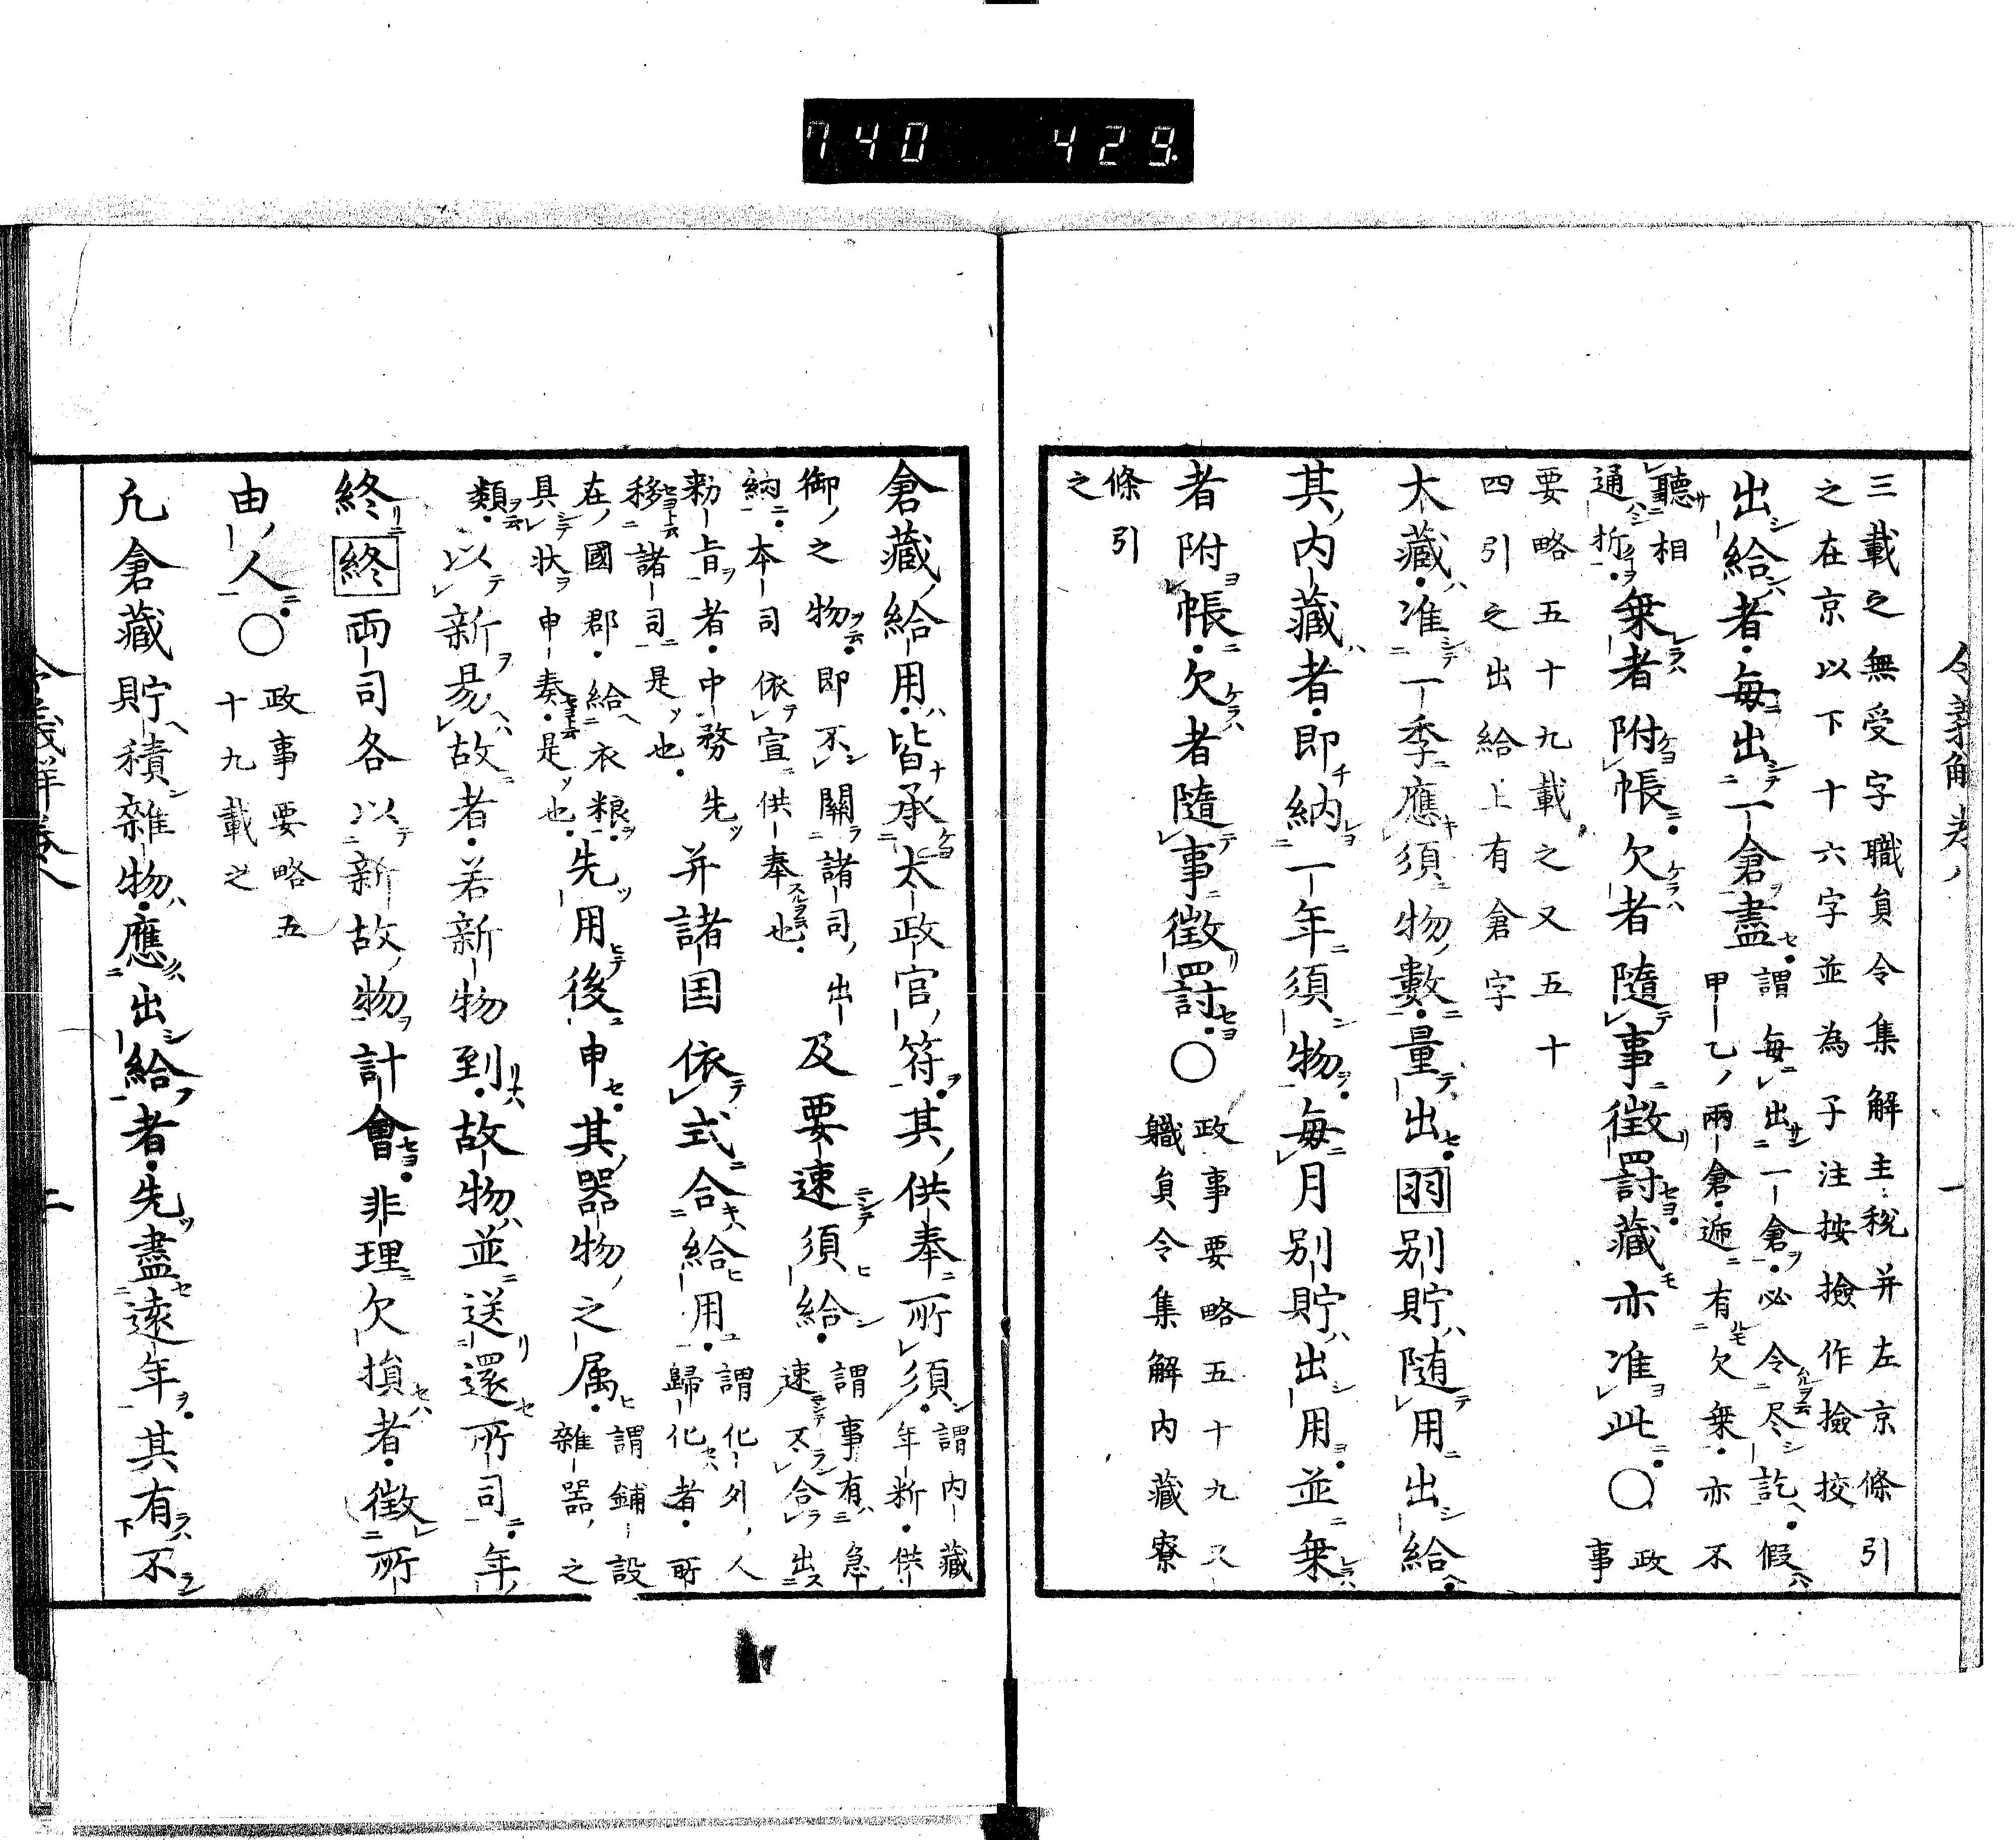 740 429
令義解卷八 一
三載之無受字職負令集解主税并左京條引
之在京以下十六字並為子注按撿作撿挍
出給者每出一倉盡
謂每出一倉必令尽訖假
甲乙兩倉遞有欠乗亦不
聽相
通折
乗者附帳欠者隨事徵罸藏亦准此〇
政
事
要略五十九載之又五十
四引之出給上有倉字
大藏准一季應須物數量出羽別貯随用出給
其内藏者即納一年須物每月別貯出用並乗
者附帳欠者隨事徵罸〇
政事要略五十九又
軄負令集解内藏寮
條引
之
倉藏給用皆承太政官符其供奉所須
謂内藏
年断供
御之物即不關諸司出
納本司依宣供奉也
及要速須給
謂事有急
速不合出
勅旨者中務先
移諸司是也
并諸国依式合給用
謂化外人
歸化者所
在國郡給衣粮
具状申奏是也
先用後申其器物之属
謂鋪設
雜器之
類
以新易故者若新物到故物並送還所司年
終終両司各以新故物計會非理欠損者徵所
由人〇
政事要略五
十九載之
凢倉藏貯積雜物應出給者先盡遠年其有不
二